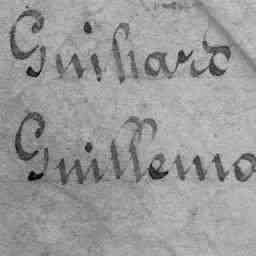 Guilhard
Guillemo